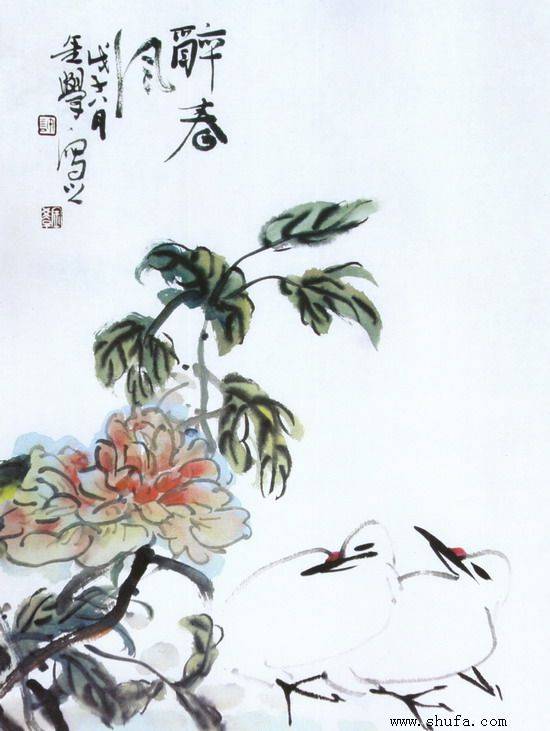 醉春
风
戊子八月
學寫之
www.shufa.com